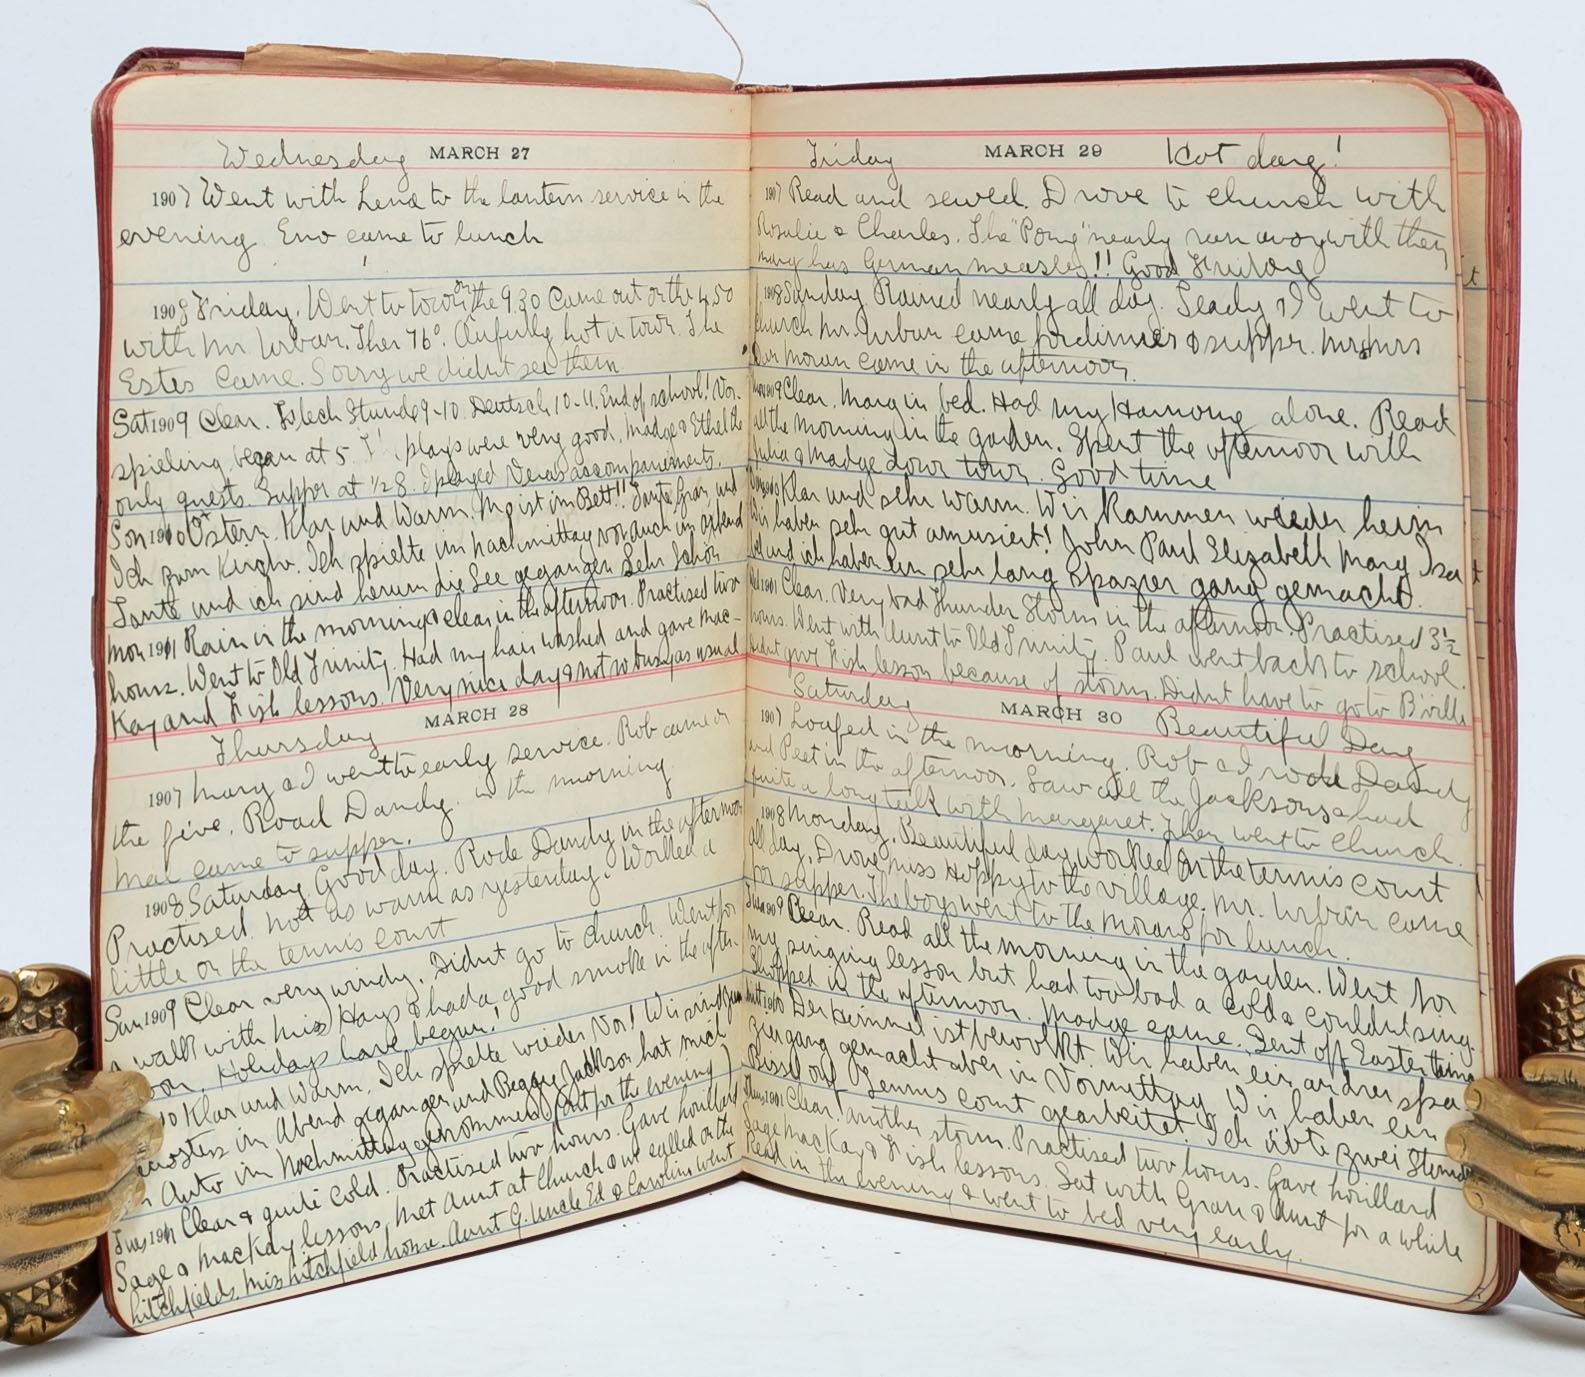 Wednesday MARCH 27
1907 Went with Lena to the lantern service in the
evening. Eno came to lunch
1908 Friday. Went to town on the 9.30 Came out on the 4.50
with Mr Urban. Ther 76°. Awfully hot in town. The
Estes Came. Sorry we didnt see them
Sat 1909 Clear. Stunde 9-10. Deutsch 10-11. End of school! Vor-
spieling began at 5 plays were very good. Madge & Ethel the
only guests. Supper at 1/2 8. I played Vera's accompaniments.
Son 1910 Östern. Klar und Warm. M ist im Bett!! Tante, Gran, und
Ich zum Kirche. Ich spielte im nachmittag vor auch im abend
Tante und ich sind herum die See gegangen Sehr Schön
Mon 1911 Rain in the morning & clear in the afternoon. Practised two
hours. Went to Old Trinity. Had my hair washed and gave Mac-
Kay and Fish lessons. Very nice day & not so busy as usual
MARCH 28
Thursday
1907 Mary & I went to early service. Rob came on
the five. Road Dandy in the morning
came to supper.
1908 Saturday Good day. Rode Dandy in the afternoon
Practised. not as warm as yesterday. Worked a
little on the tennis court
Sun 1909 Clear very windy. Didnt go to church. Went for
a walk with Miss Hays & had a good smoke in the after-
noon. Holidays have begun!
10 Klar und Warm. Ich spielte wieder Vor! Wir sind zum
im Abend gegangen und Peggy Jackson hat mich
Auto im Nachmittag genommen (Out for the evening)
Tues 1911 Clear & quite cold. Practised two hours. Gave
Sage & MacKay lessons, Met Aunt at Church & we called on the
Litchfields. Miss Litchfield home. Aunt G. Uncle Ed & Caroline went
Friday MARCH 29 Hot dang!
1907 Read and sewed. Drove to church with
Rosalie & Charles. The "Pony" nearly run away with them
Mary has German measles!! Good Friday
1908 Sunday Rained nearly all day. Seady & I went to
church Mr. Urban came for dinner & supper. Mr & Mrs
Dan Moran came in the afternoon.
Mon 1909 Clear. Marg in bed. Had my Harmony alone. Read
all the morning in the garden. Spent the afternoon with
Julia & Madge down town. Good time
Klar und sehr warm. Wir kammen wieder heim
Wir haben sehr gut amusiert! John Paul Elizabeth Mary Isa
bel und ich haben ein sehr lang spazier gang gemacht.
Wed 1911 Clear. Very bad Thunder Storm in the afternoon. Practised 3½
hours. Went with Aunt to Old Trinity. Paul went back to school.
didnt give Fish lesson because of storm. Didnt have to go to B'ville
Saturday MARCH 30 Beautiful Day
1907 Loafed in the morning. Rob & I rode Dandy
and Peet in the afternoon. Saw all the Jacksons & had
quite a long talk with Margaret. Then went to Church.
1908 Monday. Beautiful day worked on the tennis court
all day. Drove Miss Hoppy to the village. Mr. Urban came
for supper. The boys went to the Morans for lunch.
Tues 1909 Clear. Read all the morning in the garden. Went for
my singing lesson but had too bad a cold & couldnt sing.
Shopped in the afternoon. Madge came. Sent off Easter things
Mitt 1910 Der himmel ist bewolkt. Wir haben ein andres spa-
ziergang gemacht aber im Vormittag. Wir haben ein
Bissl auf Tennis court gearbeitet. Ich übte zwei Stunde
Thurs 1911 Clear! Another storm. Practised two hours. Gave
Sage MacKay & Fish lessons. Sat with Gran & Aunt for a while
Read in the evening & went to bed very early.